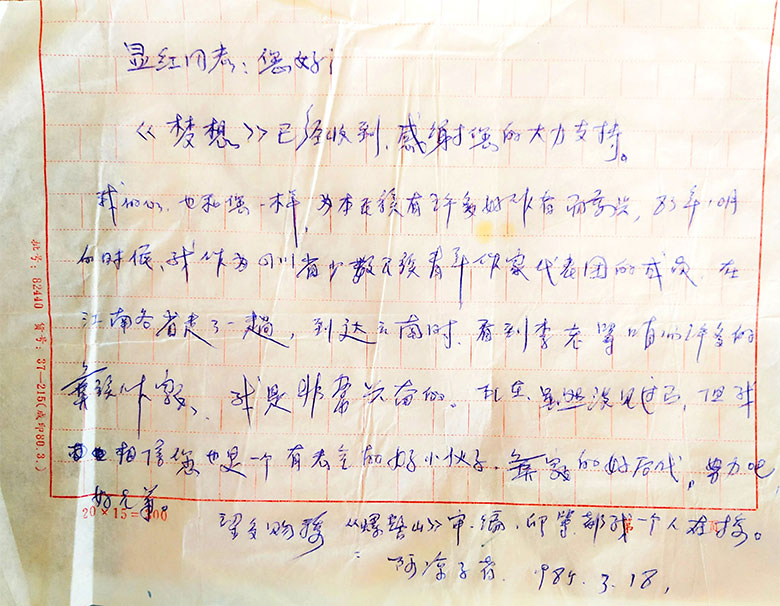 显红同志：您好！
《梦想》已经收到，感谢您的大力支持。
我的心，也和您一样，为本民族有许多好作者而高兴，83年10月
的时候，我作为四川省少数民族青年作家代表团的成员，在
江南各省走了一趟，到达云南时，看到李老 的许多的
彝族作家，我是非常兴奋的。现在虽然没见过面，但我
相信您也是一个有志气的好小伙子。彝家的好后代，努力吧，
好兄弟。
20×15=300
望多购 《 山》审、编、印等都我一个人在搞。
阿凉子者 1985.3.18，
批号：82440 货号：37-215(成印80.3.)